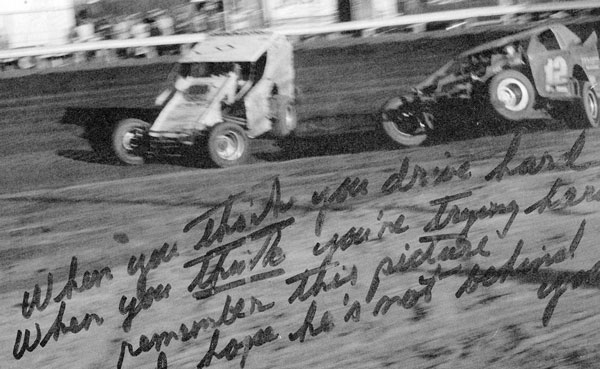 12
When you think you drive hard
When you think you're trying hard
remember this picture.
I hope he's not behind
you